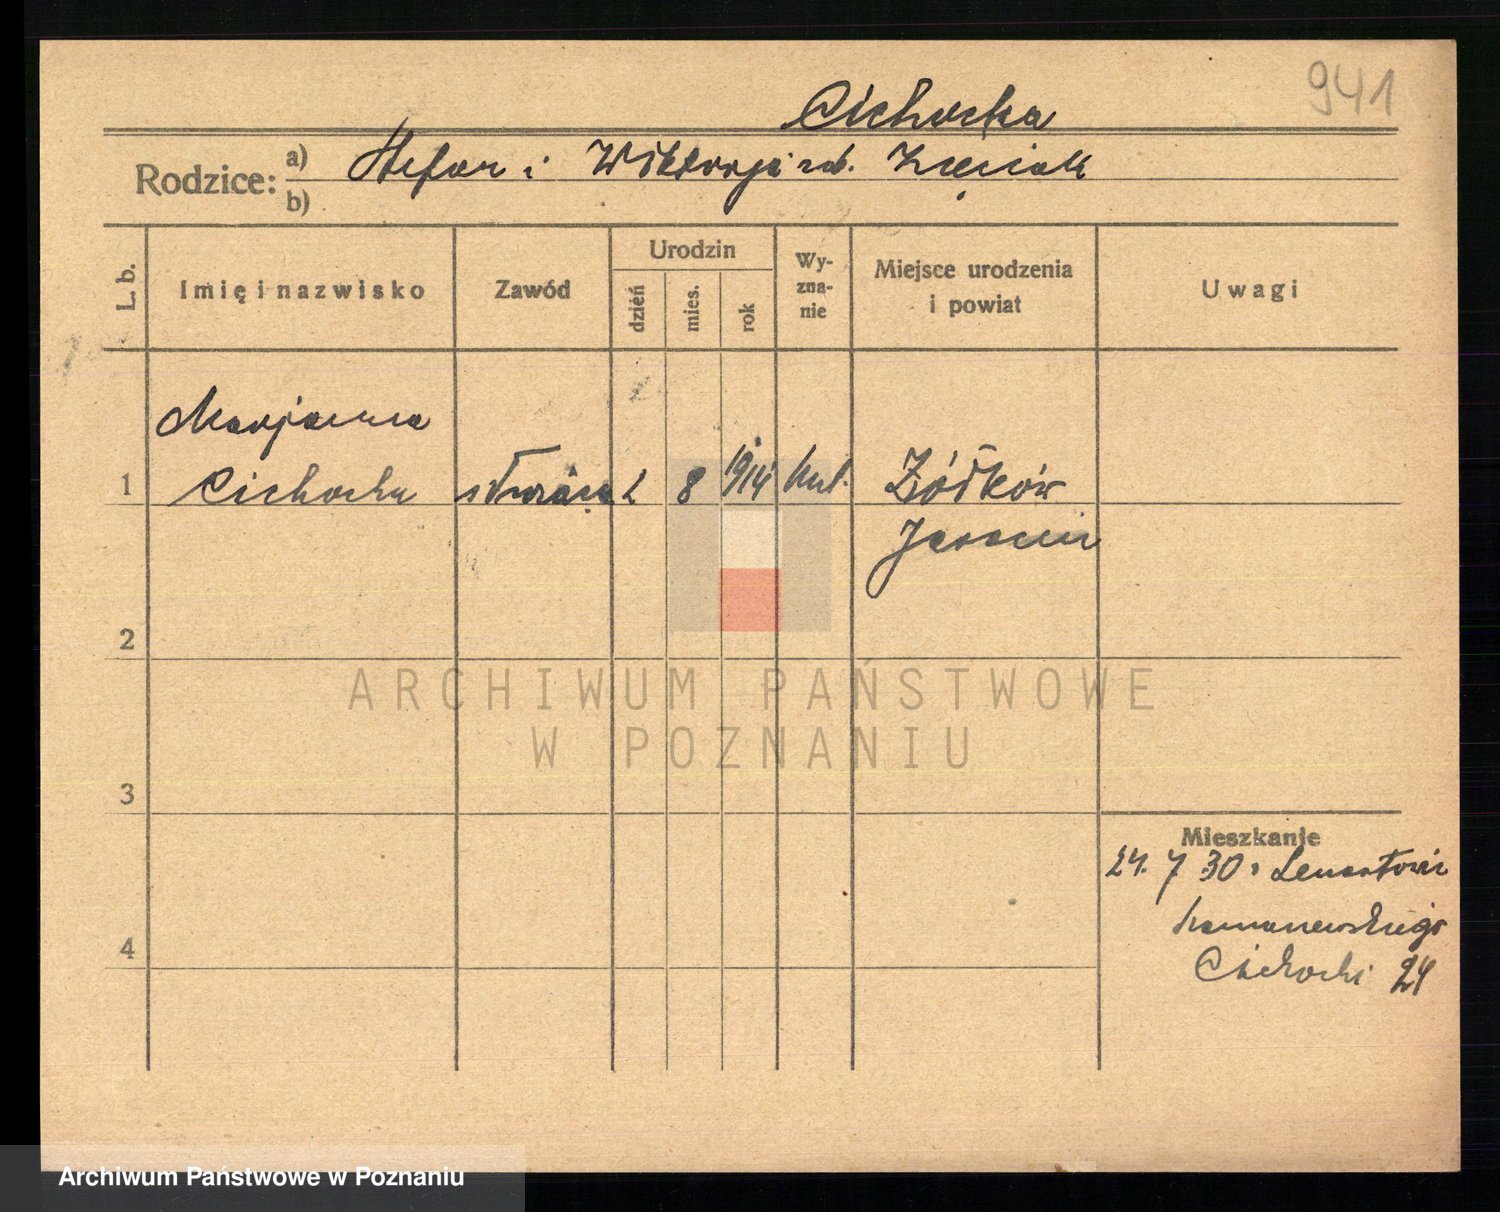 941
Cichocka
Rodzice: a) Stefan i Wiktorja
b)
L. b.
Imię i nazwisko
Zawód
Urodzin
dzień
mies.
rok
Wy-
zna-
nie
Miejsce urodzenia
i powiat
Uwagi
Marjanna
1 Cichocka służąca 2 8 1914 kat. Żółków
Jarocin
2
3
4
Mieszkanie
24. 7 30
Cichocki 24
ARCHIWUM PAŃSTWOWE
W POZNANIU
Archiwum Państwowe w Poznaniu